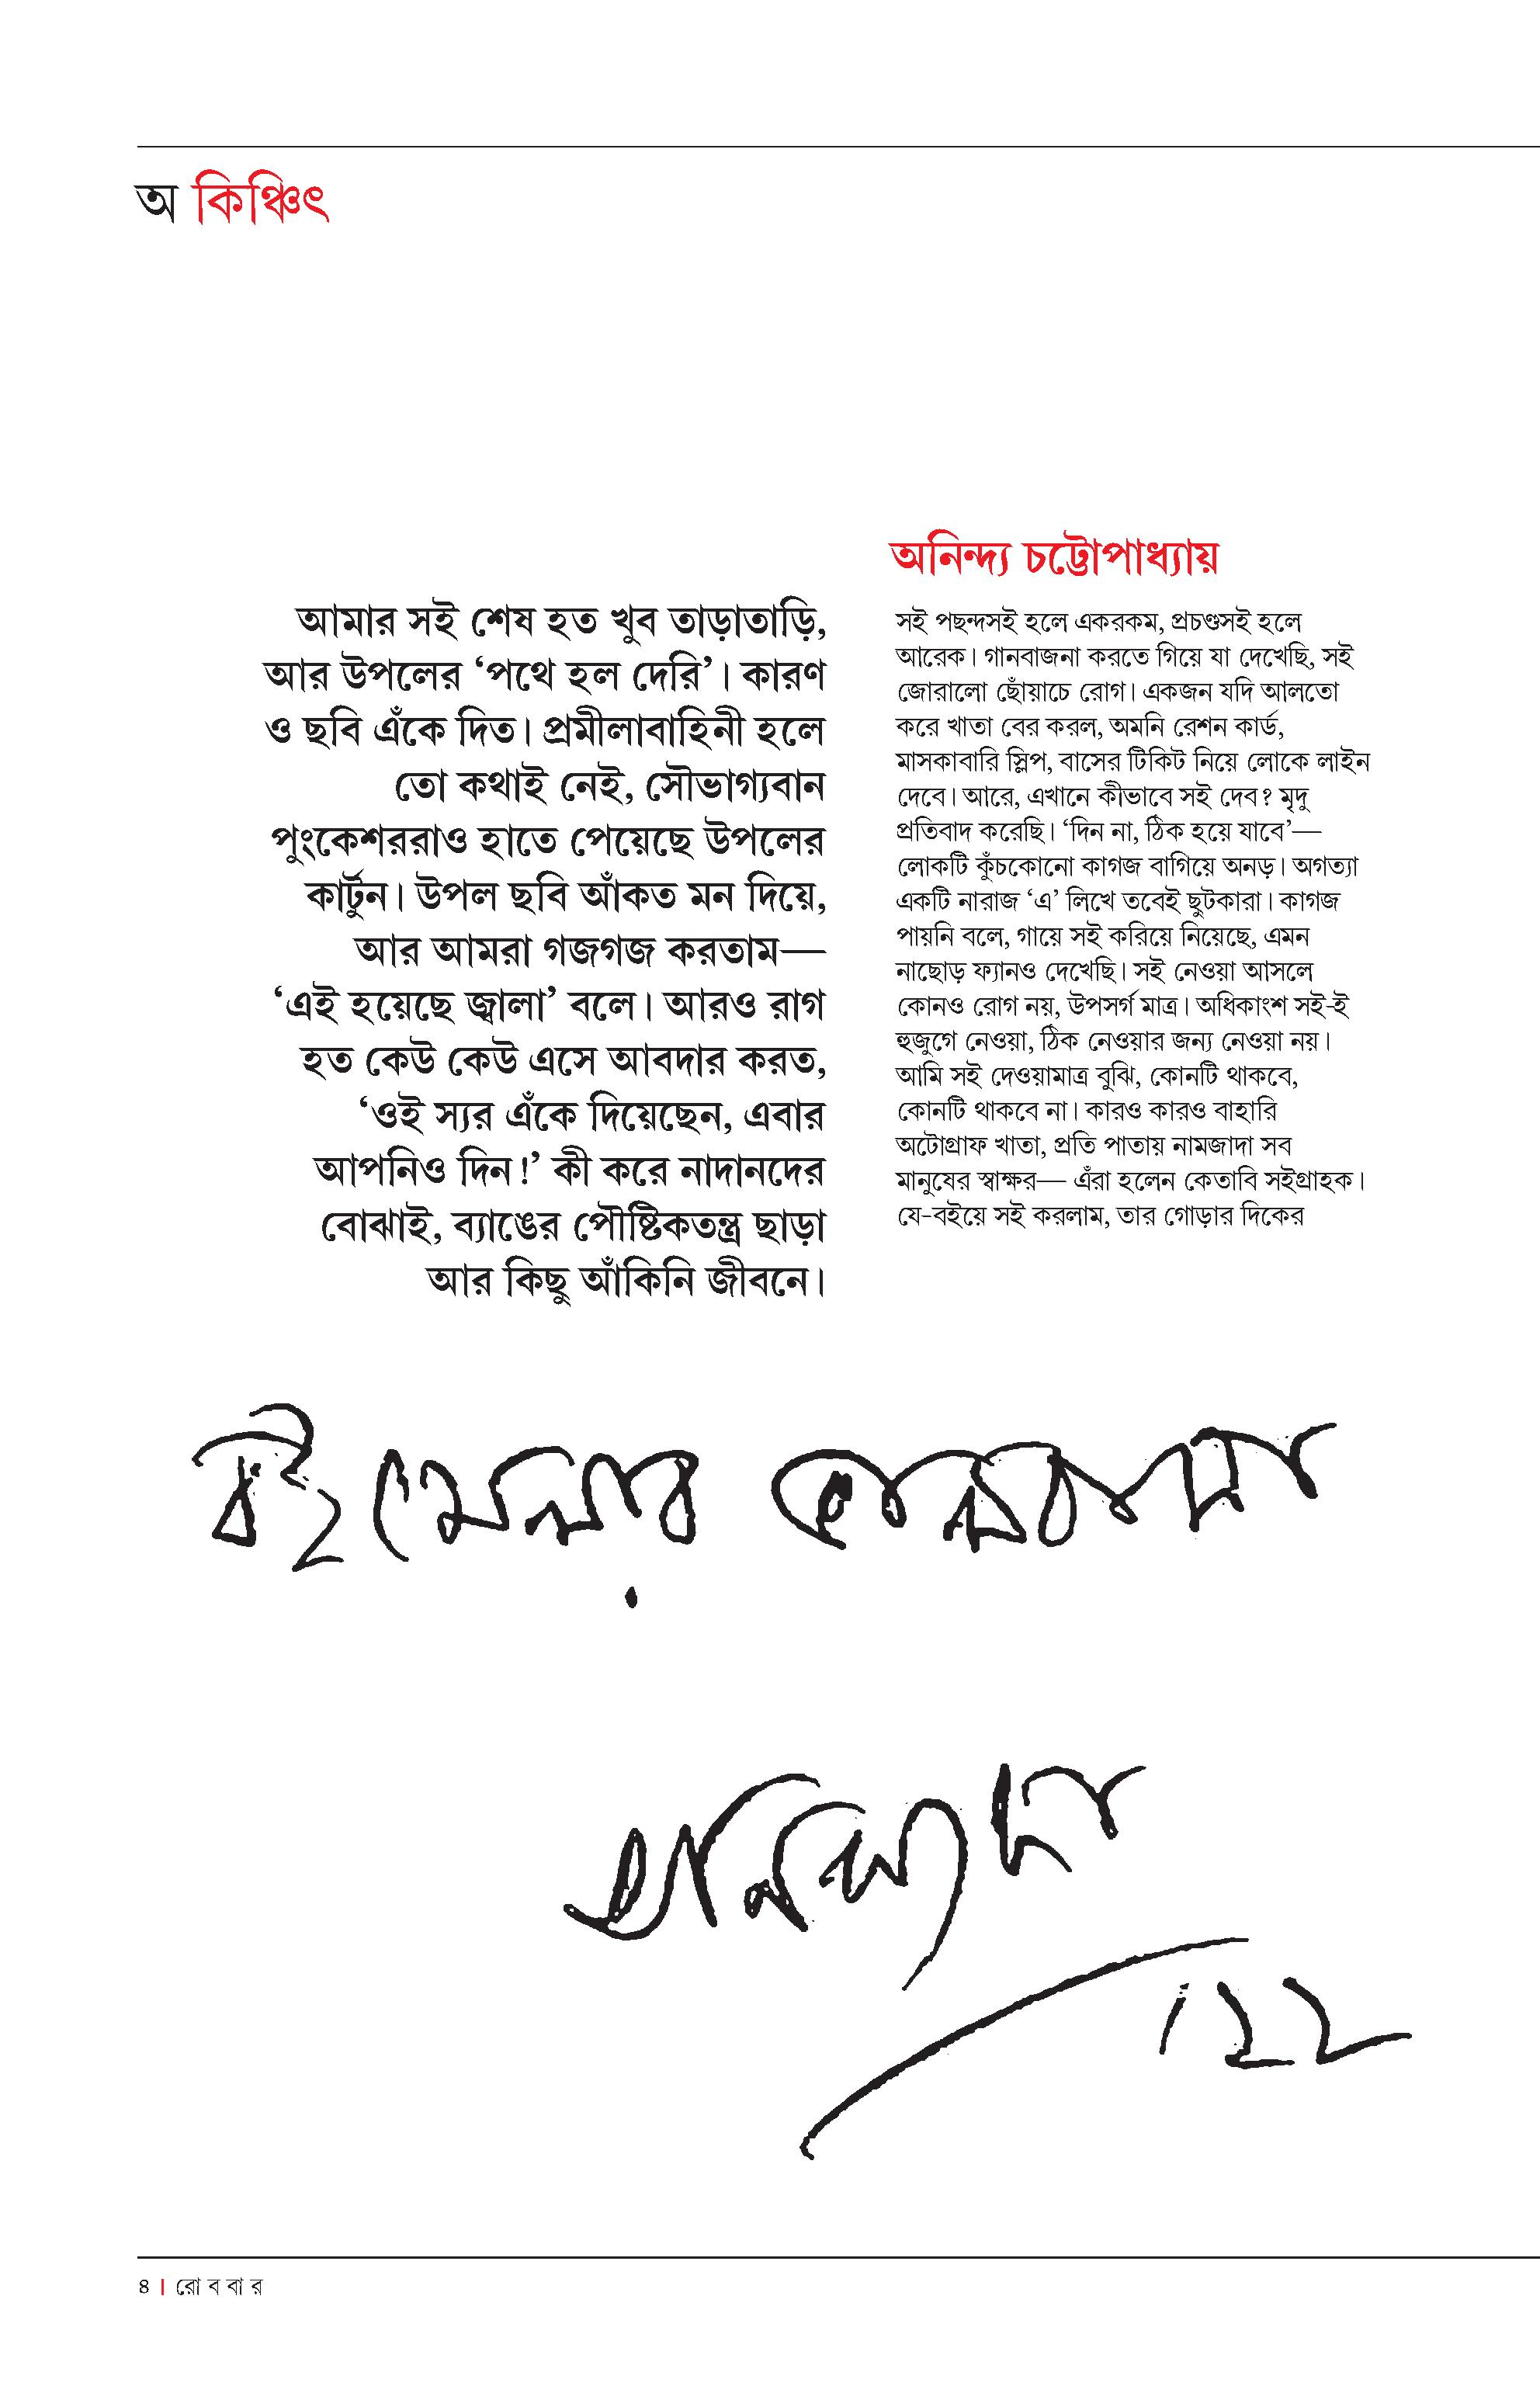 অ কিঞ্চিৎ
আমার সই শেষ হত খুব তাড়াতাড়ি,
আর উপলের ‘পথে হল দেরি’। কারণ
ও ছবি এঁকে দিত। প্রমীলাবাহিনী হলে
তো কথাই নেই, সৌভাগ্যবান
পুংকেশররাও হাতে পেয়েছে উপলের
কার্টুন। উপল ছবি আঁকত মন দিয়ে,
আর আমরা গজগজ করতাম—
‘এই হয়েছে জ্বালা’ বলে। আরও রাগ
হত কেউ কেউ এসে আবদার করত,
‘ওই স্যর এঁকে দিয়েছেন, এবার
আপনিও দিন!’ কী করে নাদানদের
বোঝাই, ব্যাঙের পৌষ্টিকতন্ত্র ছাড়া
আর কিছু আঁকিনি জীবনে।
অনিন্দ্য চট্টোপাধ্যায়
সই পছন্দসই হলে একরকম, প্রচণ্ডসই হলে
আরেক। গানবাজনা করতে গিয়ে যা দেখেছি, সই
জোরালো ছোঁয়াচে রোগ। একজন যদি আলতো
করে খাতা বের করল, অমনি রেশন কার্ড,
মাসকাবারি স্লিপ, বাসের টিকিট নিয়ে লোকে লাইন
দেবে। আরে, এখানে কীভাবে সই দেব? মৃদু
প্রতিবাদ করেছি। ‘দিন না, ঠিক হয়ে যাবে’—
লোকটি কুঁচকোনো কাগজ বাগিয়ে অনড়। অগত্যা
একটি নারাজ ‘এ’ লিখে তবেই ছুটকারা। কাগজ
পায়নি বলে, গায়ে সই করিয়ে নিয়েছে, এমন
নাছোড় ফ্যানও দেখেছি। সই নেওয়া আসলে
কোনও রোগ নয়, উপসর্গ মাত্র। অধিকাংশ সই-ই
হুজুগে নেওয়া, ঠিক নেওয়ার জন্য নেওয়া নয়।
আমি সই দেওয়ামাত্র বুঝি, কোনটি থাকবে,
কোনটি থাকবে না। কারও কারও বাহারি
অটোগ্রাফ খাতা, প্রতি পাতায় নামজাদা সব
মানুষের স্বাক্ষর— এঁরা হলেন কেতাবি সইগ্রাহক।
যে-বইয়ে সই করলাম, তার গোড়ার দিকের
বইমেলার
অনিন্দ্যদা
৪ । রোববার